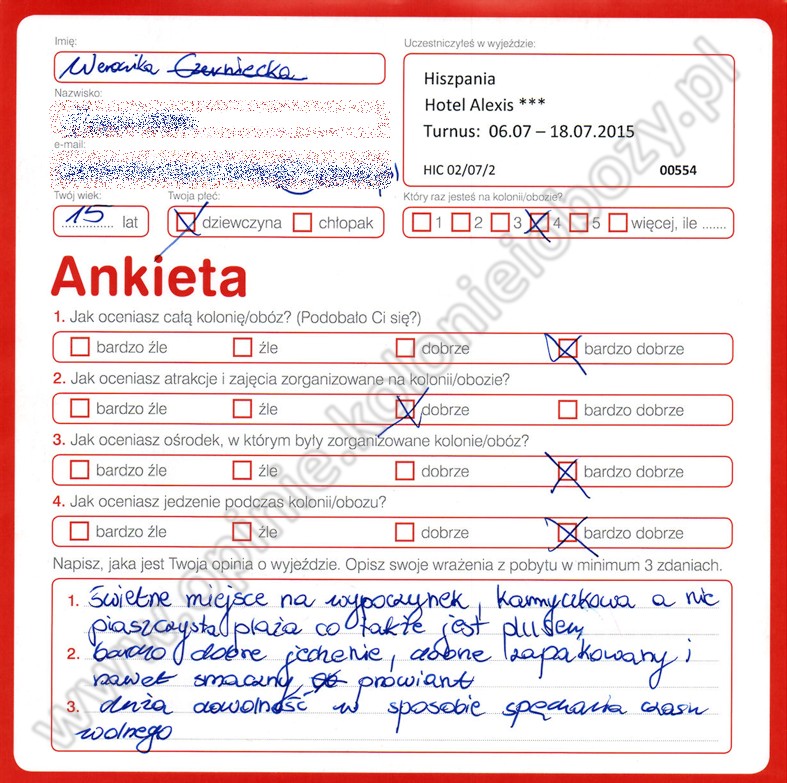 Imię:
Weronika Czerniecka
Nazwisko:
e-mail:
Twój wiek:
15 lat
Twoja płeć:
dziewczyna chłopak
Uczestniczyłeś w wyjeździe:
Hiszpania
Hotel Alexis ***
Turnus: 06.07 – 18.07.2015
HIC 02/07/2 00554
Który raz jesteś na kolonii/obozie?
1 2 3 4 5 więcej, ile .......
Ankieta
1. Jak oceniasz całą kolonię/obóz? (Podobało Ci się?)
bardzo źle źle dobrze bardzo dobrze
2. Jak oceniasz atrakcje i zajęcia zorganizowane na kolonii/obozie?
bardzo źle źle dobrze bardzo dobrze
3. Jak oceniasz ośrodek, w którym były zorganizowane kolonie/obóz?
bardzo źle źle dobrze bardzo dobrze
4. Jak oceniasz jedzenie podczas kolonii/obozu?
bardzo źle źle dobrze bardzo dobrze
Napisz, jaka jest Twoja opinia o wyjeździe. Opisz swoje wrażenia z pobytu w minimum 3 zdaniach.
1. świetne miejsce na wypoczynek, kamyczkowa a nie
piaszczysta plaża co także jest plusem
2. bardzo dobre jedzenie, dobrze zapakowany i
nawet smaczny prowiant
3. duża dowolność w sposobie spędzania czasu
wolnego
www.opinie.kolonieiobozy.pl